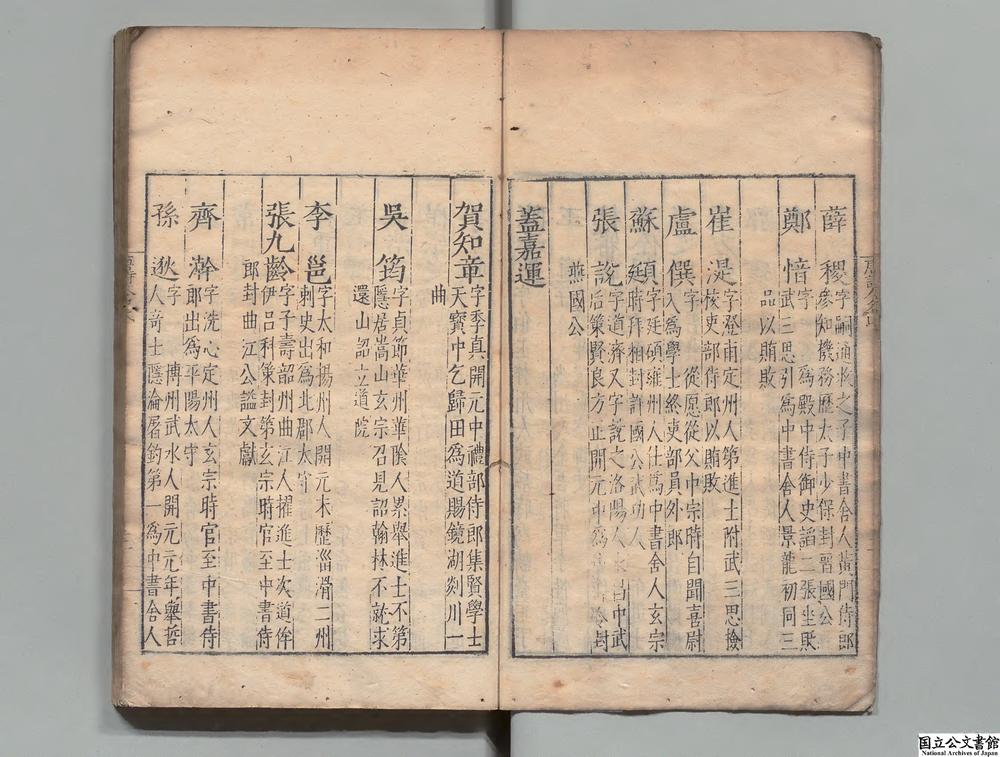 薛稷字嗣通收之子中書舍人黄門侍郎
參知機務歷太子少保封晉國公
鄭愔字 爲殿中侍御史謟二張坐貶
武三思引爲中書舍人景龍初同三
品以賄敗
崔湜字澄甫定州人第進士附武三思撿
校吏部侍郎以賄敗
盧僎字 從愿從父中宗時自聞喜尉
入爲學士終吏部員外郎
蘇頲字廷碩雍州人仕爲中書舍人玄宗
廷時拜相封許國公武功人
張說字道濟又字說之洛陽人永昌中武
后策賢良方正開元中爲 封
燕國公
蓋嘉運
賀知章字季真開元中禮部侍郎集賢學士
天寳中乞歸田爲道賜鏡湖剡川一
曲
吳筠字貞節華州華陰人累舉進士不第
隱居嵩山玄宗召見詔翰林不就求
還山詔立道院
李邕字太和揚州人開元末歷淄滑二州
刺史出爲北郡太守
張九齡字子壽韶州曲江人擢進士次道侔
伊呂科策封第玄宗時官至中書侍
郎封曲江公謚文獻
齊澣字洗心定州人玄宗時官至中書侍
郎出爲平陽太守
孫逖字 博州武水人開元元年舉哲
人奇士隱淪屠釣第一爲中書舍人
国立公文書館
National Archives of Japan